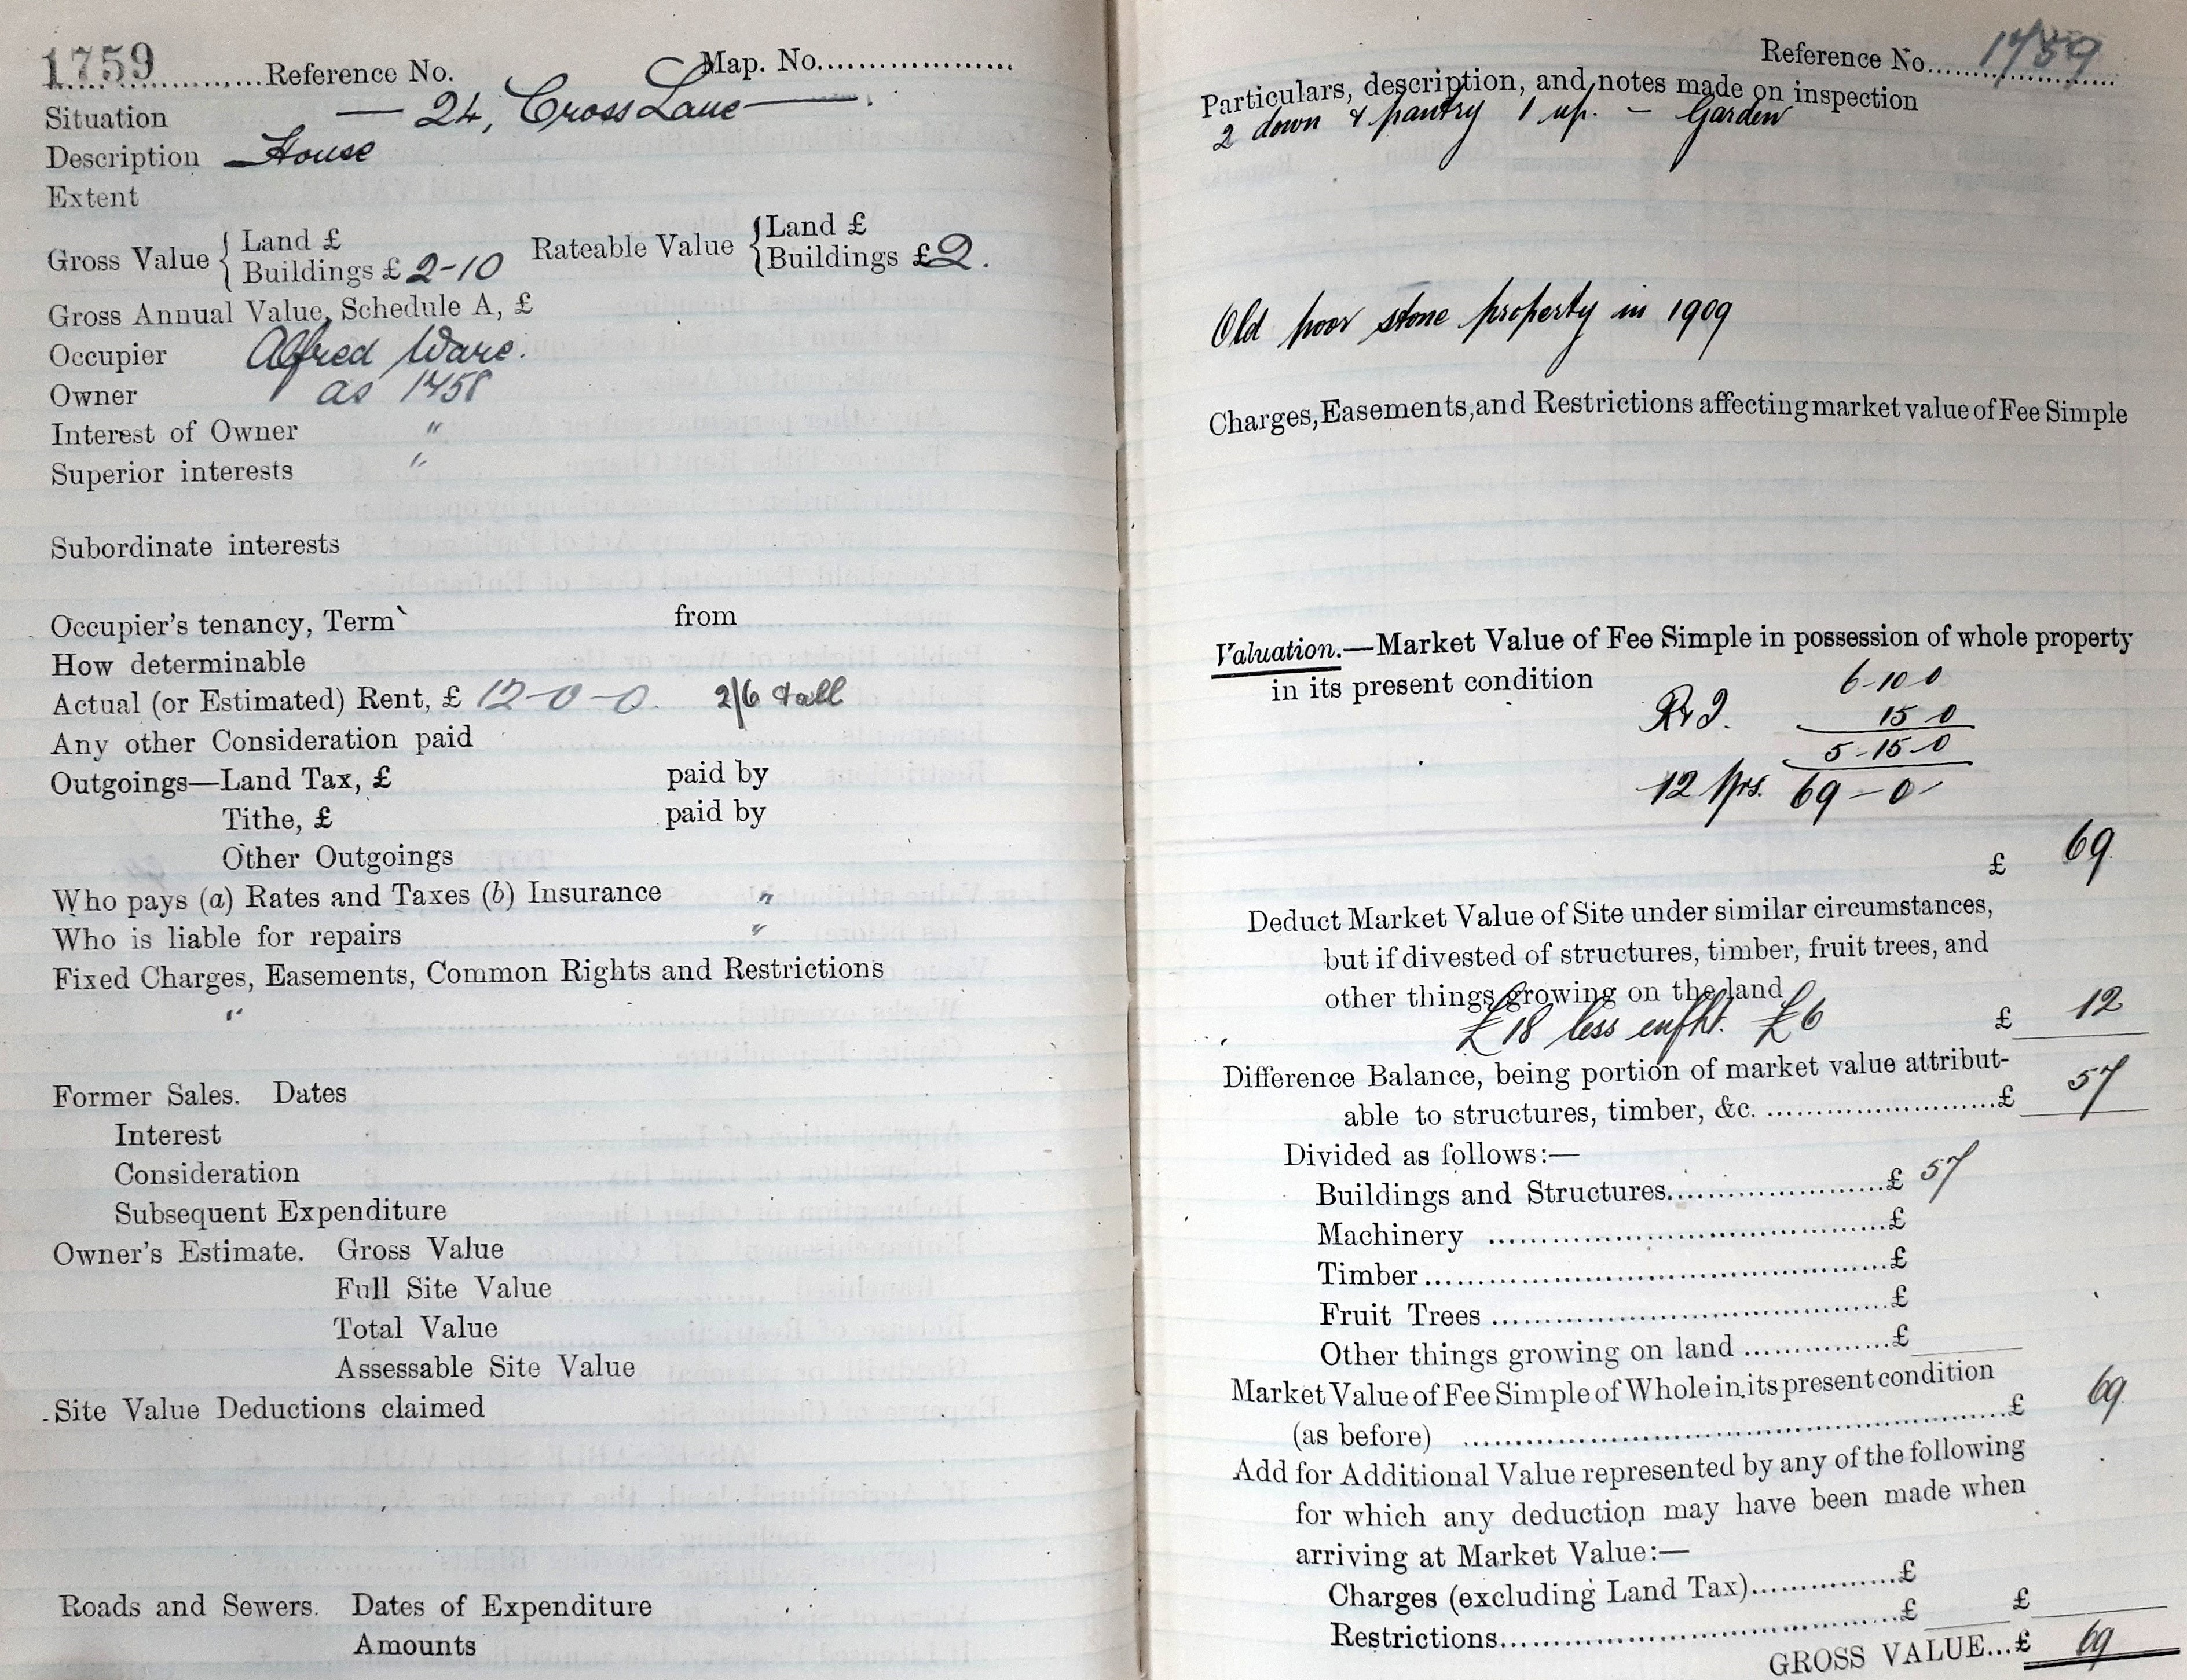 1759 ............Reference No. Map. No...................
Situation — 24, Cross Lane —
Description House
Extent
Gross Value { Land £
Buildings £ 2-10
Rateable Value { Land £
Buildings £2.
Gross Annual Value, Schedule A, £
Occupier Alfred Ware.
Owner as 1758
Interest of Owner "
Superior interests "
Subordinate interests
Occupier's tenancy, Term from
How determinable
Actual (or Estimated) Rent, £ 12-0-0. 2/6 & all
Any other Consideration paid
Outgoings—Land Tax, £ paid by
Tithe, £ paid by
Other Outgoings
Who pays (a) Rates and Taxes (b) Insurance "
Who is liable for repairs "
Fixed Charges, Easements, Common Rights and Restrictions
"
Former Sales. Dates
Interest
Consideration
Subsequent Expenditure
Owner's Estimate. Gross Value
Full Site Value
Total Value
Assessable Site Value
Site Value Deductions claimed
Roads and Sewers. Dates of Expenditure
Amounts
Reference No. 1759
Particulars, description, and notes made on inspection
2 down & pantry 1 up. - Garden
Old poor stone property in 1909
Charges, Easements, and Restrictions affecting market value of Fee Simple
Valuation.—Market Value of Fee Simple in possession of whole property
in its present condition
6-10-0
15-0
5-15-0
12 yrs. 69-0
£ 69
Deduct Market Value of Site under similar circumstances,
but if divested of structures, timber, fruit trees, and
other things growing on the land
£18 less enfht. £6 £ 12
Difference Balance, being portion of market value attribut-
able to structures, timber, &c. ..............................£ 57
Divided as follows:—
Buildings and Structures........................£ 57
Machinery ..........................................£
Timber................................................£
Fruit Trees .........................................£
Other things growing on land ................£
Market Value of Fee Simple of Whole in its present condition
(as before) ..........................................................£ 69
Add for Additional Value represented by any of the following
for which any deduction may have been made when
arriving at Market Value:—
Charges (excluding Land Tax)................£
Restrictions..........................................£ £
GROSS VALUE...£ 69